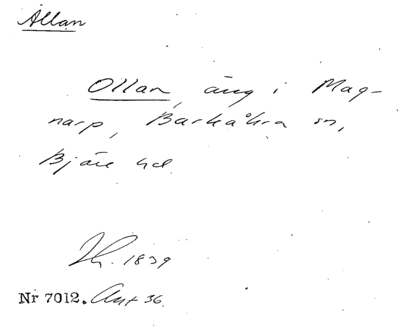 Ållan
Ollan, äng i Mag-
narp, Barkåkra sn,
Bjäre hd.
Lh. 1839
Nr 7012. Ant 36.